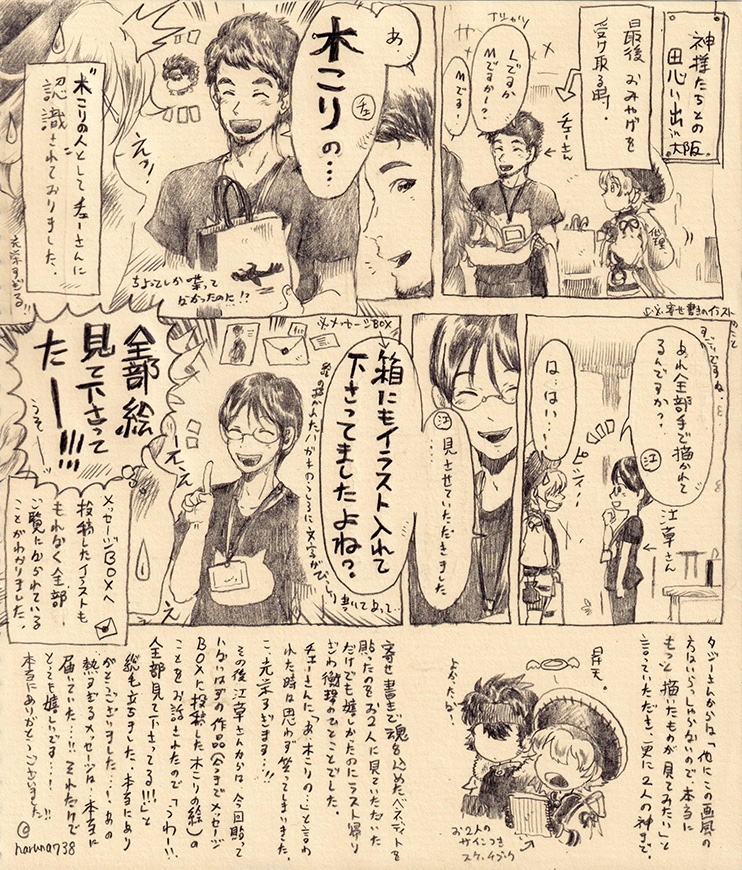 神様たちとの
思い出 in 大阪
最後おみやげを
受け取る時。
チューさん
Lですか
Mですかー?
Mです!
修理
あ。
木こりの…
チェ
えっ!
ちょっとしか喋って
なかったのに!?
"木こりの人"として チューさんに
認識されておりました。
光栄すぎる!!
※寄せ書きのイラスト
あれ全部手で描かれて
るんですか?
江
は…はい…!
江草さん
江
見させていただきました
※メッセージBOX
箱にもイラスト入れて
下さってましたよね?
全部絵
見て下さって
たー!!!!
うそー
えええ
メッセージBOXへ
投稿したイラストも
もれなく全部、
ご覧になられている
ことがわかりました。
タジーさんからは「他にこの画風の
方はいらっしゃらないので、本当に
もっと描いたものが見てみたい」と
言っていただき、更に2人の神まで。
昇天。
よかったな!
お2人の
サインつき
スケッチブック
寄せ書きで魂を込めたベネディトを
貼ったのをお2人に見ていただいた
だけでも嬉しかったのにラスト帰り
ぎわ衝撃のひとことでした。
チューさんに、「あ、木こりの…」と言わ
れた時は思わず笑ってしまいました。
こ、光栄すぎます…!!
その後江草さんからは、今回貼って
いないはずの作品(今までメッセージ
BOXに投稿した木こりの絵)の
ことをお話されたので「うわー!!
全部見て下さってる!!!」と
総毛立ちました。本当にあり
がとうございました…!、あの
熱すぎるメッセージは、本当に
届いていた…!!それだけで
とっても嬉しいです…!!
本当にありがとうございました!!
© haruna738